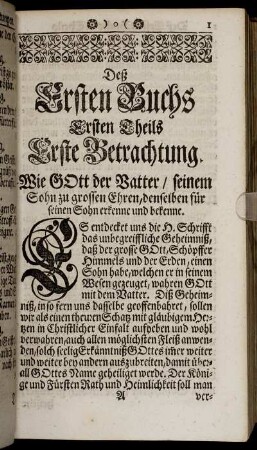 )o( 1
Deß
Ersten Buchs
Ersten Theils
Erste Betrachtung.
Wie GOtt der Vatter / seinem
Sohn zu grossen Ehren, denselben für
seinen Sohn erkenne und bekenne.
ES entdecket uns die H. Schrifft
das unbegreiffliche Geheimnüß,
daß der grosse GOtt, Schöpffer
Himmels und der Erden, einen
Sohn habe, welchen er in seinem
Wesen gezeuget, wahren GOtt
mit dem Vatter. Diß Geheim-
nüß, in so fern uns dasselbe geoffenbahret, sollen
wir als einen theuren Schatz mit gläubigem Her-
tzen in Christlicher Einfalt aufheben und wohl
verwahren, auch allen möglichsten Fleiß anwen-
den, solch seelig Erkäntnüß GOttes im̃er weiter
und weiter bey andern auszubreiten, damit über-
all GOttes Name geheiliget werde. Der Köni-
ge und Fürsten Rath und Heimlichkeit soll man
A ver-